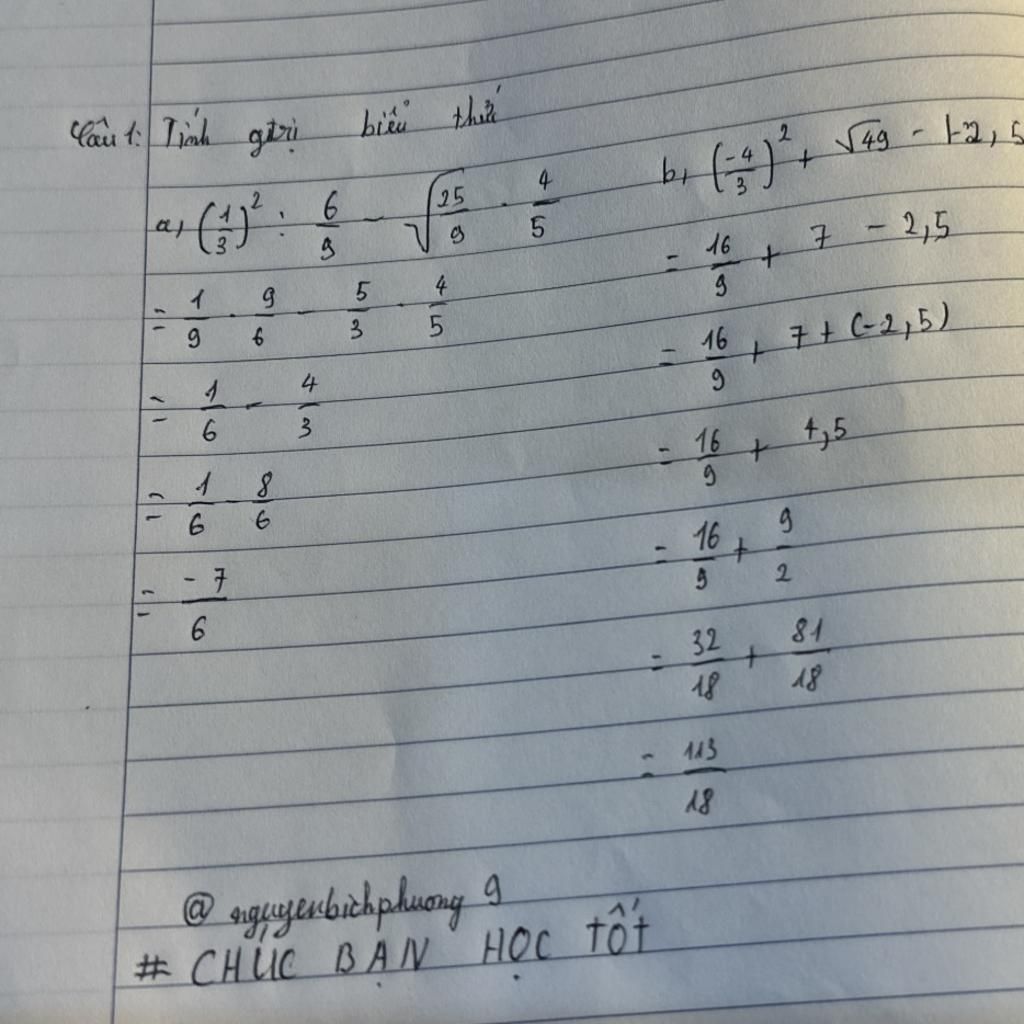 Câu 1: Tính gtrị biểu thức
a, (1/3)² : 6/9 - √(25/9) . 4/5
= 1/9 . 9/6 - 5/3 . 4/5
= 1/6 - 4/3
= 1/6 - 8/6
= -7/6
b, (-4/3)² + √49 - |-2,5
= 16/9 + 7 - 2,5
= 16/9 + 7 + (-2,5)
= 16/9 + 4,5
= 16/9 + 9/2
= 32/18 + 81/18
= 113/18
@ nguyenbichphuong 9
# CHÚC BẠN HỌC TỐT